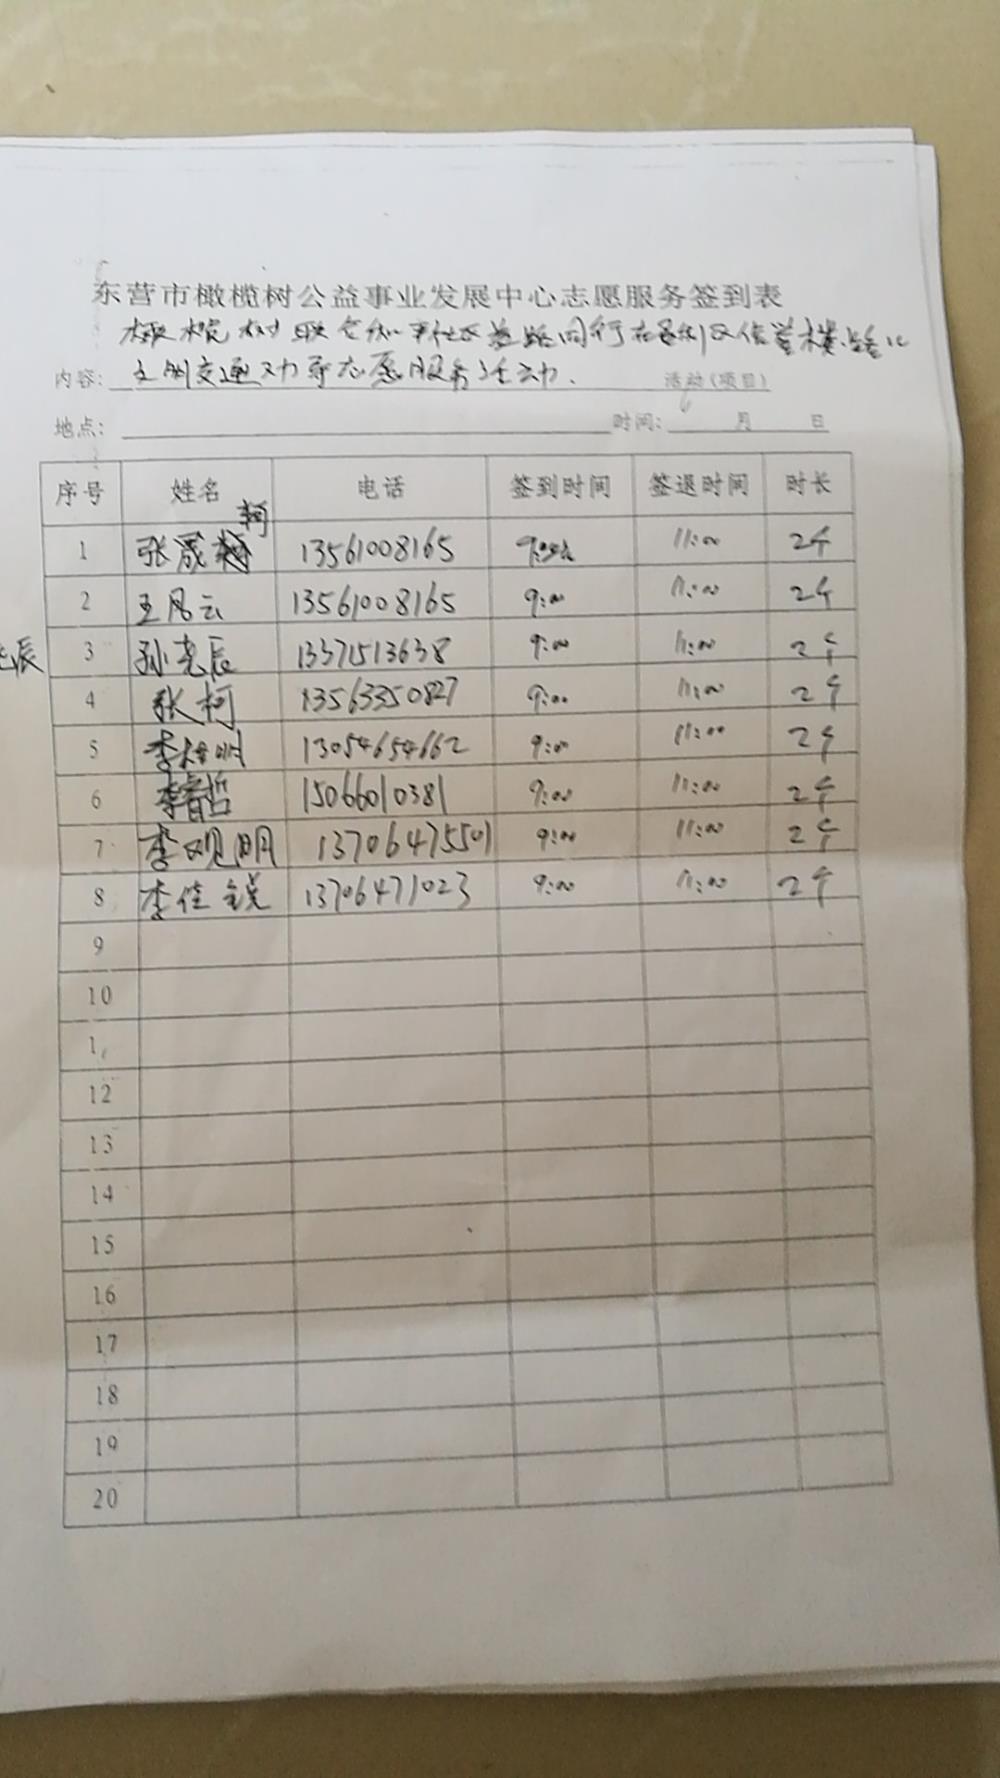 东营市橄榄树公益事业发展中心志愿服务签到表
橄榄树联合
内容: 文明交通 志愿服务活动. 活动(项目)
地点: 时间: 月 日
序号 姓名 电话 签到时间 签退时间 时长
1 张晟 柯 13561008165 11:00 2个
2 王风云 13561008165 9:00 11:00 2个
辰 3 孙尧辰 13371513638 9:00 11:00 2个
4 张柯 13563350827 9:00 11:00 2个
5 李 明 13054654662 9:00 11:00 2个
6 李睿哲 15066010381 9:00 11:00 2个
7 李观明 13706475501 9:00 11:00 2个
8 李佳锐 13706471023 9:00 11:00 2个
9
10
1
12
13
14
15
16
17
18
19
20